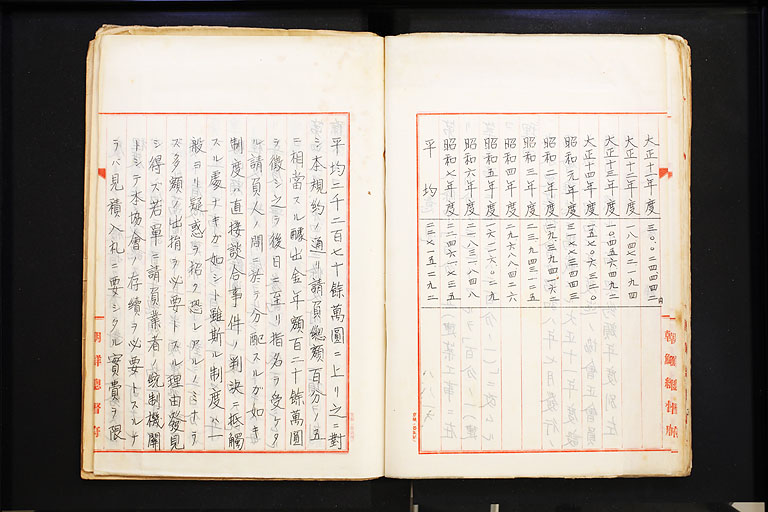 大正十一年度 三〇〇二四四四二
大正十二年度 一八四七二一九四
大正十三年度 一〇四五六四二九
大正十四年度 一五七〇六三二〇
昭和元年度
昭和二年度
昭和三年度 二三九四三一二五
昭和四年度 二九六八八四二六
昭和五年度
昭和六年度 二一八三一八四八
昭和七年度 二二四六一七三五
平均 二二七一五二九二
朝鮮總督府
平均二千二百七十餘萬圓ニ上リ之ニ對
シ本規約ノ通リ請負總額百分ノ五
ニ相當スル醵出金年額百二十餘萬圓
ヲ徴シ之ヲ後日ニ至リ指名ヲ受ケタ
ル請負人ノ間ニ於テ分配スルカ如キ
制度ハ直接談合事件ノ判決ニ抵觸
スル處ナキカ如シト雖斯ル制度ハ一
般ヨリ疑惑ヲ招ク恐レアルノミナラ
ズ多額ノ出捐ヲ必要トスル理由發見
シ得ズ若單ニ請負業者ノ統制機關
トシテ本協會ノ存續ヲ必要トスルナ
ラバ見積入札ニ要シタル實費ヲ限
朝鮮總督府